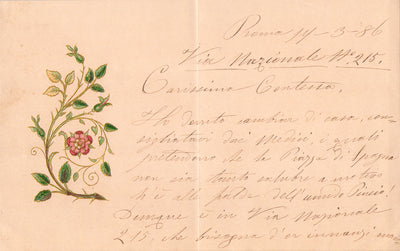 Roma 14-3-86
Via Nazionale No. 215.
Carissima Contessa.
Ho dovuto cambiar di casa, con-
sigliatavi dai Medici, i quali
pretendono che la Piazza di Spagna
non sia tanto salubre a motivo
ch'è alle falde dell'umido Pincio!
Dunque è in Via Nazionale
215, che bisogna d'or innanzi